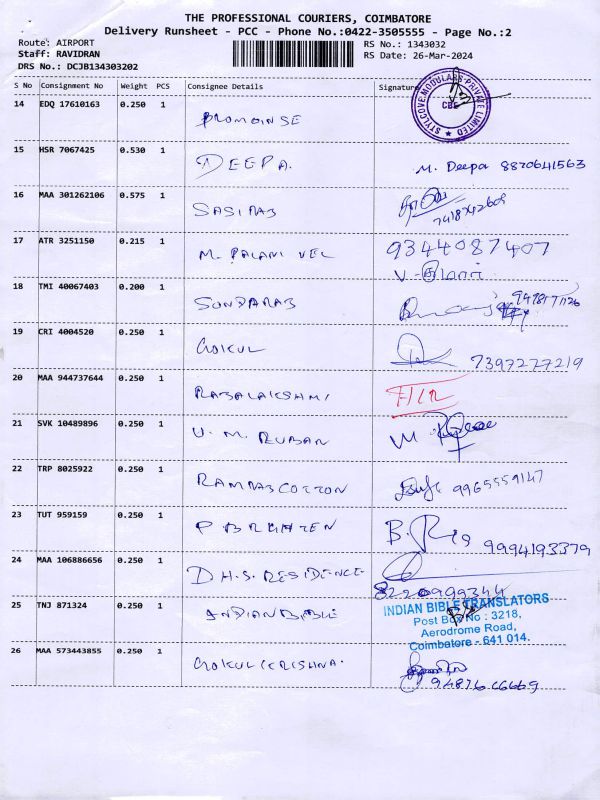 THE PROFESSIONAL COURIERS, COIMBATORE
Delivery Runsheet - PCC - Phone No.:0422-3505555 - Page No.:2
Route: AIRPORT RS No.: 1343032
Staff: RAVIDRAN RS Date: 26-Mar-2024
DRS No.: DCJB134303202
S No Consignment No Weight PCS Consignee Details Signature
14 EDQ 17610163 0.250 1 STYLCOVE MODULARS PRIVATE LIMITED CBE
15 HSR 7067425 0.530 1 DEEPA. M. Deepa 8870641563
16 MAA 301262106 0.575 1 SASIRAJ
17 ATR 3251150 0.215 1 M. PALANI VEL 9344087407
18 TMI 40067403 0.200 1 SUNDARAJ
19 CRI 4004520 0.250 1 GOKUL 7397277219
20 MAA 944737644 0.250 1 RAJALAKSHMI
21 SVK 10489896 0.250 1 U. M. RUBAN
22 TRP 8025922 0.250 1 RAMRAJ COTTON 9965559147
23 TUT 959159 0.250 1 9994193379
24 MAA 106886656 0.250 1 D.H.S. RESIDENCE 8220999344
25 TNJ 871324 0.250 1 INDIAN BIBLE INDIAN BIBLE TRANSLATORS
Post Box No : 3218,
Aerodrome Road,
Coimbatore - 641 014.
26 MAA 573443855 0.250 1 GOKUL KRISHNA.